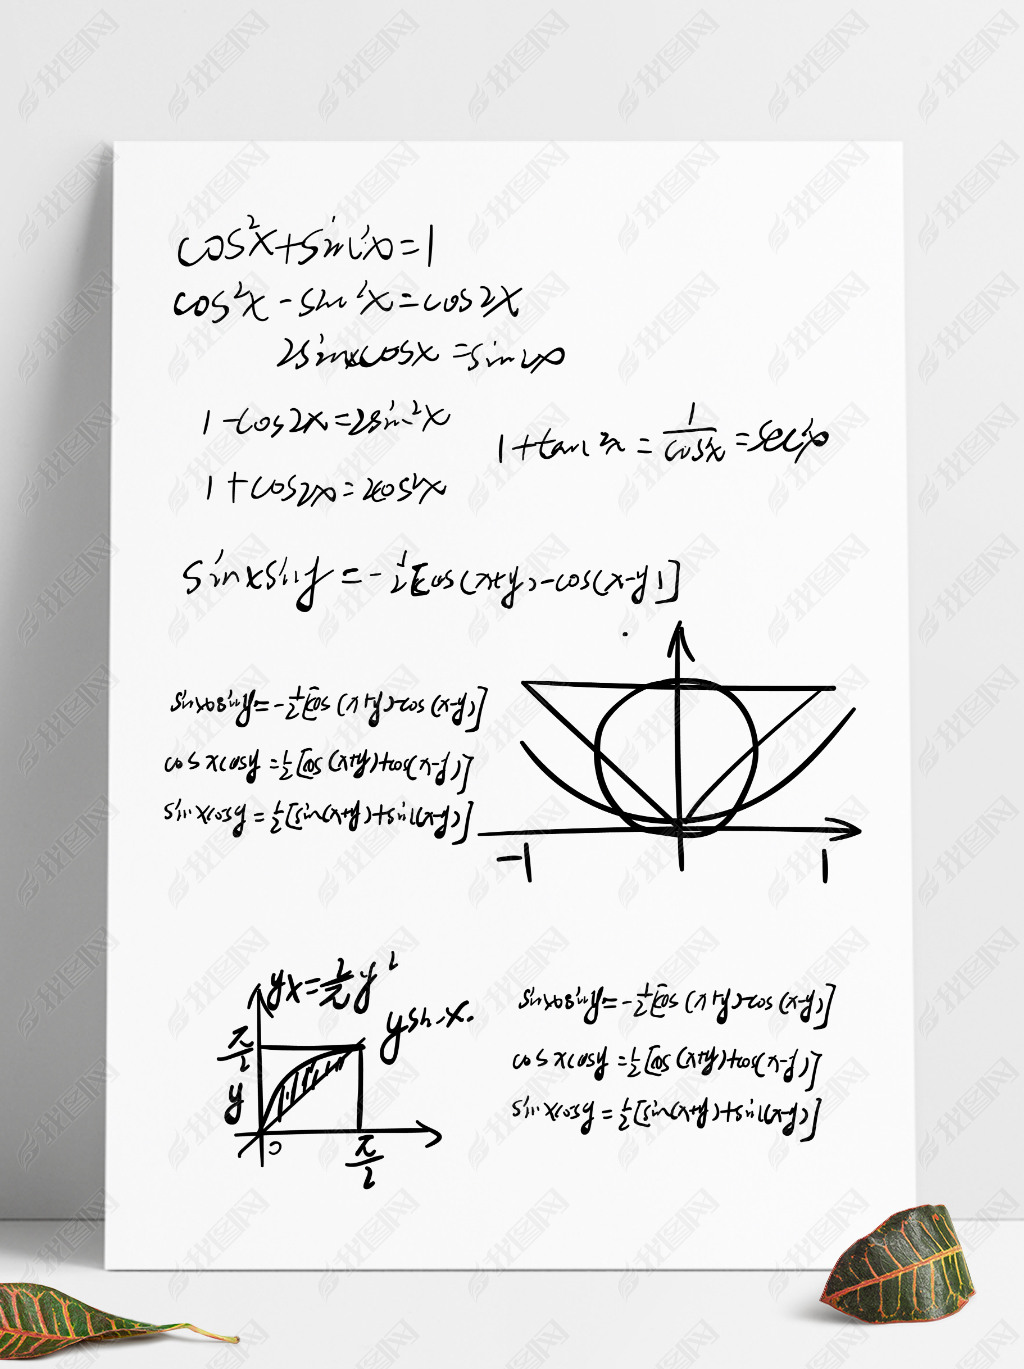 cos²x+sin²x=1
cos²x-sin²x=cos2x
2sinxcosx=sin2x
1-cos2x=2sin²x
1+tan²x=1/cos²x=sec²x
1+cos2x=2cos²x
sinxsiny=-1/2[cos(x+y)-cos(x-y)]
sinxsiny=-1/2[cos(x+y)-cos(x-y)]
cosxcosy=1/2[cos(x+y)+cos(x-y)]
sinxcosy=1/2[sin(x+y)+sin(x-y)]
-1
1
yx=2/π y²
y sin x.
π/2
y
0
π/2
sinxsiny=-1/2[cos(x+y)-cos(x-y)]
cosxcosy=1/2[cos(x+y)+cos(x-y)]
sinxcosy=1/2[sin(x+y)+sin(x-y)]
我图网